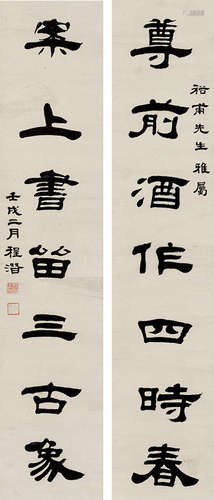 尊前酒作四時春
裕甫先生雅属
案上書留三古象
壬戌二月程潛